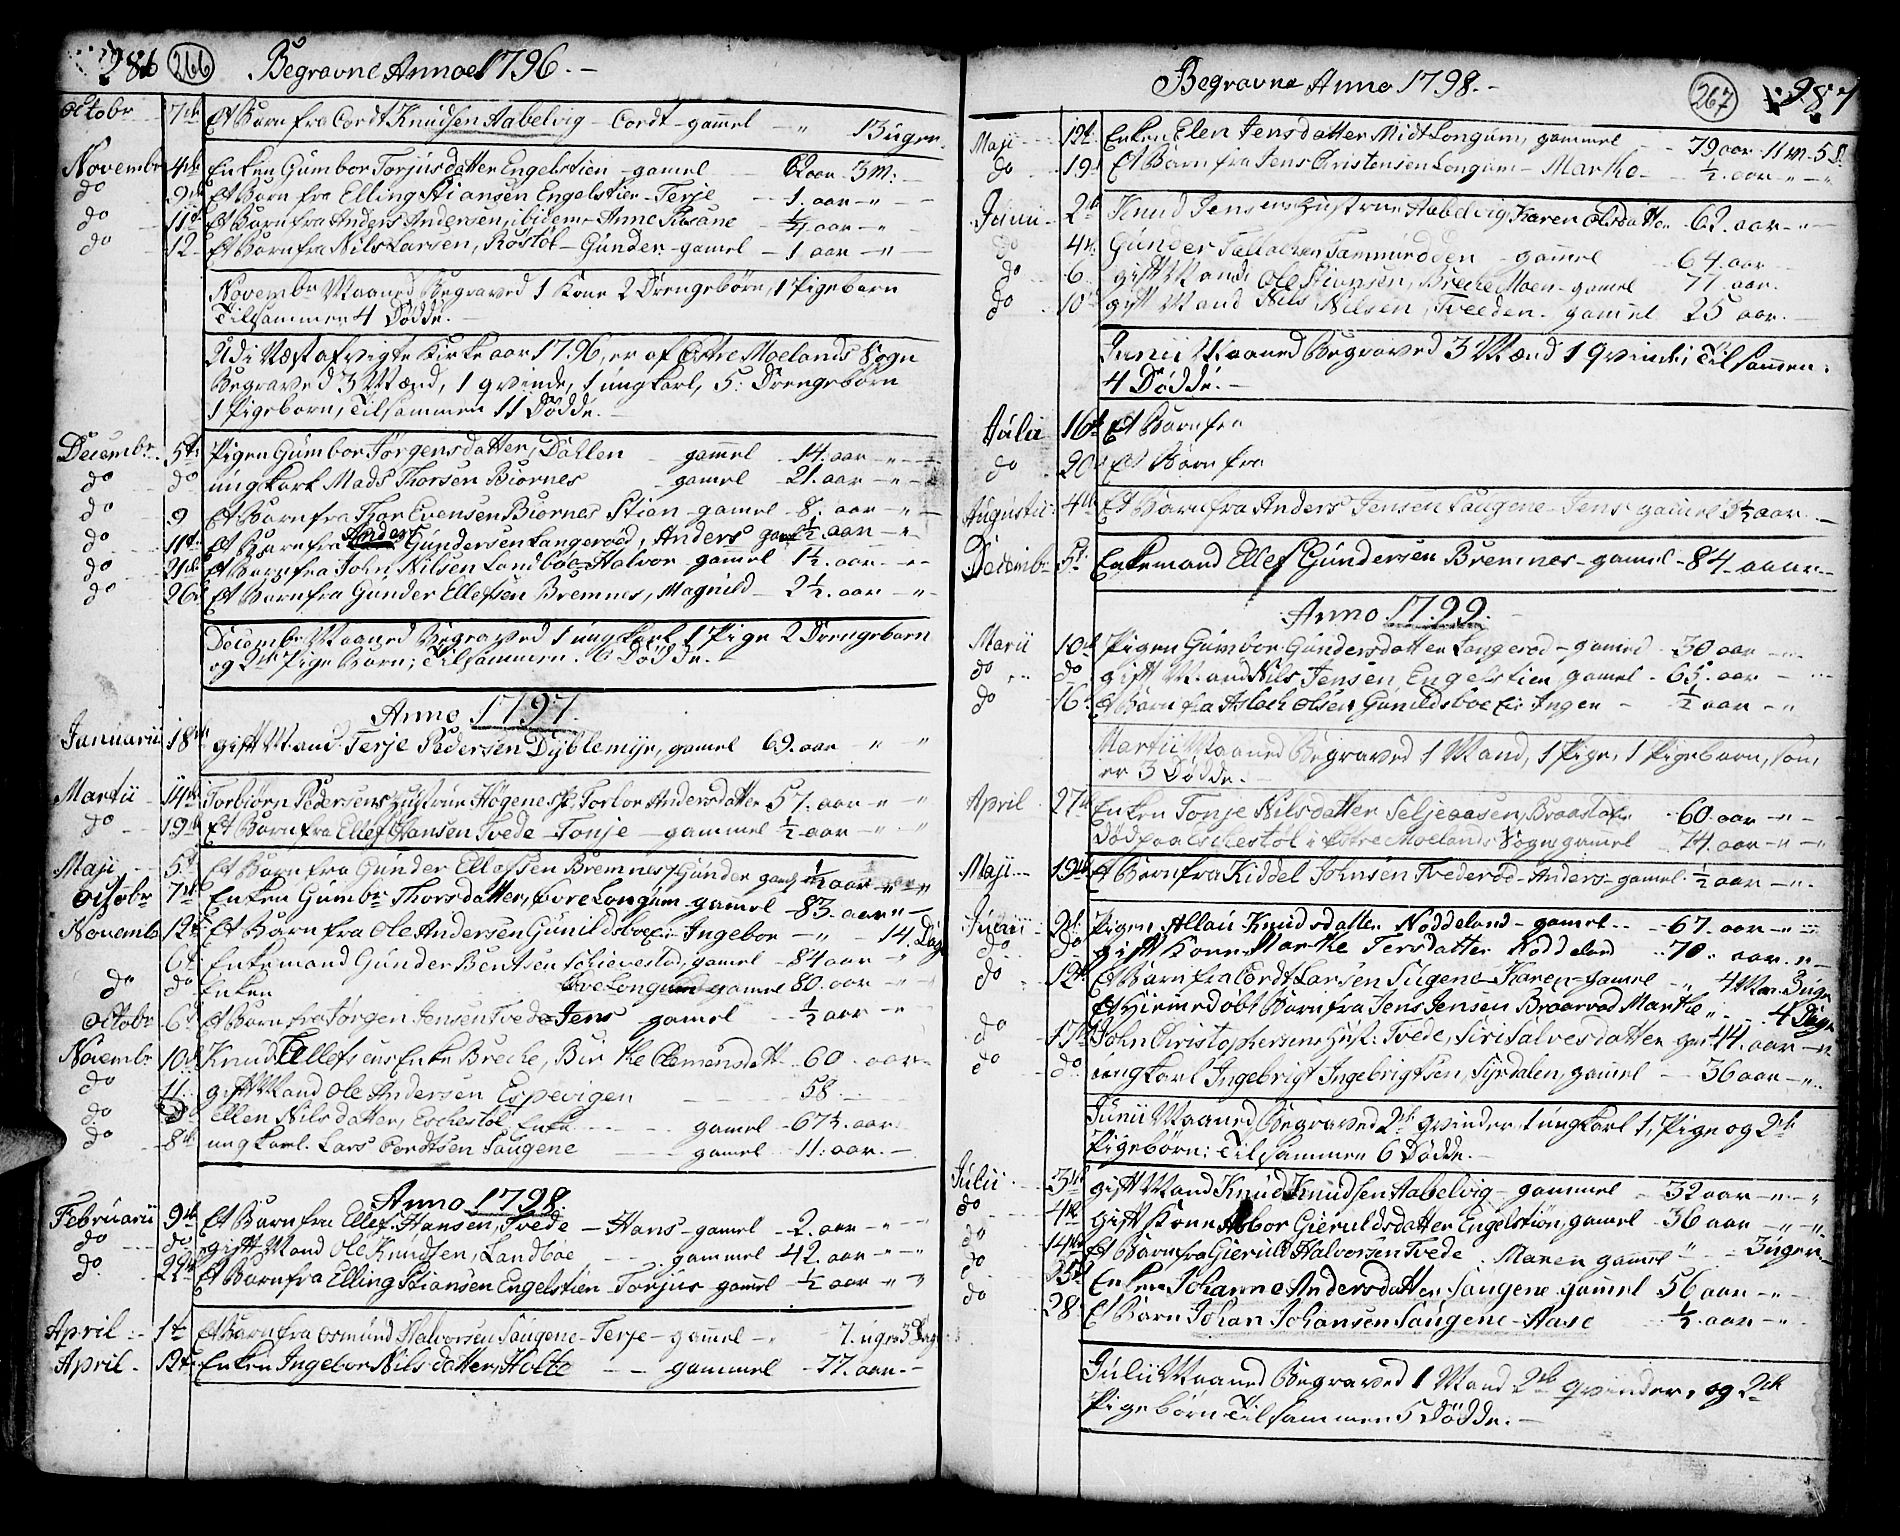 286 266 Begravne Annoe 1796.-
Octobr 7de Et Barn fra Cordt Knudsen Aabelvig - Cordt - gamel - „ 13 uger.
Novembr 4de Enken Gumbor Torjusdatter Engelstien - gamel 62 aar - 3 M:
do 9de Et Barn fra Elling Stiansen Engelstien - Terje - 1. aar - „
do 11te Et Barn fra Anders Andersen, ibidem - Anne Susane ¼ aar - „
do 12 Et Barn fra Nils Larsen, Röstöl - Gunder - gamel - 1 aar - „
Novembr Maaned Begraved 1 Kone 2 Drengebörn, 1 Pigebarn
Tilsammen 4 Dödde.
Udi Næst afvigte Kirke aar 1796, er af Östre Moelands Sogn
Begraved 3 Mænd, 1 qvinde, 1 ungkarl, 5: Drengebörn
1 Pigebarn, Tilsammen 11 Dödde. -
Decembr. 5te Pigen Gumbor Jörgensdatter, Dahlen - gamel - 14. aar - „
do do ungkarl Mads Thorsen Biornes gamel - 21. aar - „
do 9 Et Barn fra Thor Evensen Biornes Stian - gamel - 8. aar - „
do 11te Et Barn fra Anders Gundersen Langeröd, Anders gaml ½ aar - „
do 21de Et Barn fra John Nilsen Landböe - Halvor - gammel 1½. aar. - „
do 26de Et Barn fra Gunder Ellefsen Bremnes, Magnild - 2½. aar - „
Decembr Maaned Begraved 1 ungkarl 1 Pige 2 Drengebarn
og 2de Pige Barn; Tilsammen. 6 Dödde. -
Anno 1797.
Januarii 18de gift Mand Terje Pedersen Dyblemyr, gamel 69. aar „ „
Martii 14de Torbiörn Pedersens Hustrue Högenes, Torbor Andersdatter 57. aar - „ „
do 19de Et Barn fra Ellef Hansen Tvede - Tonje - gammel ½ aar - „ „
Maji 5te Et Barn fra Gunder Ellefsen Bremnes, Gunder gaml ½ aar - „
Octobr 7de Enken Gumbr Thorsdatter, övre Longum - gamel - 83. aar „ -
Novemb 12te Et Barn fra Ole Andersen Gunildsböe - Ingebor - „ - 14 Dage
6te Enkemand Gunder Bentsen Schievestad, gamel - 84 aar - „
do do Enken övre Longum gamel 80. aar - „
Octobr 6te Et Barn fra Jörgen Jensen Tvede - Jens - gamel - ½ aar - „
Novembr 10de Knud Ellefsens Enke Breche, Birthe Clemensdatter 60. aar -
do 11. gift Mand Ole Andersen Espevigen 58.
do do Ellen Nilsdatter, Eschestöl Enke - - gamel - 67½. aar
do 8de ungkarl. Lars Cordtsen Saugene gamel - 11. aar. -
Anno 1798.
Februarii 9de Et Barn fra Ellef Hansen, Tvede - Hans - gamel - 2. aar - „
do do gift Mand Ole Knudsen, Landböe - - gammel - 42. aar - „
do 22de Et Barn fra Elling Stiansen Engelstien - Torjus - gamel - ½ aar - „
April 1te Et Barn fra Osmund Halvorsen Saugene - Terje - gamel - „ 7. uger 3 Dage
April 12te Enken Ingebor Nilsdatter, Holte - gammel - 77. aar. -
Begravne Anno 1798.- 267 287
Maji 12te Enken Elen Jensdatter Midt Longum, gammel - 79 aar - 11 M - 5 D.
do 19. Et Barn fra Jens Christensen Longum - Marthe - ½. aar - „
Junii 2de Knud Jensens Hustrue Aabelvig Karen Olsdatter 62. aar - „
do 4de Gunder Tallachsen Tammundden - gammel 64. aar
do 6. gift Mand Ole Stiansen, Breche Moen - gamel 71. aar.
do 10de gift Mand Nils Nilsen, Tveeden. gammel 25 aar.
Junii Maaned Begraved 3 Mænd 1 qvinde; Tilsammen.
4 Dödde. -
Julii 16te Et Barn fra
do 20de Et Barn fra
Augusti 4de Et Barn fra Anders Jensen Saugene - Jens gamel 3½ aar. -
Decembr 5te Enkemand Ellef Gundersen Bremnes - gamel - 84 - aar -
Anno 1799.
Martii 10de Pigen Gumbor Gundersdatter Langeröd - gamel - 30 aar - „
do do gift Mand Nils Jensen Engelstien, gamel - 65. aar -
do 16. Et Barn fra Aslach Olsen Gunildsböe - Ingen - ½ aar - „
Martii Maaned Begraved 1 Mand, 1 Pige, 1 Pigebarn, som
er 3 Dödde. -
April 27de Enken Tonje Nilsdatter Seljeaasen, Braastad 60. aar - „ -
Död paa Eschestöl i Östre Moelands Sogn gamel 74. aar - „
Maji 19de Et Barn fra Kiddel Johnsen Tvederöd - Anders - gamel - ½ aar - „.
Junii 2de Pigen Allau Knudsdatter Noddeland - gamel - 67. aar - „
do do gift Kone Marthe Tersdatter Noddeland 70. aar. „ -
do 12te Et Barn fra Cordt Larsen Sugene - Karen - gamel „ 4 Mar. 3 uger
Et Hiemedöbt Barn fra Jens Jensen Braarvad Marthe „ . 4 Dage
do 17de John Christophersens Hust: Tvede, Siri Salvesdatter gaml 44. aar - „
do do ungkarl Ingebrigt Ingebrigtsen, Syrdalen, gamel - 36 aar - „
Junii Maaned Begraved 2de qvinder, 1 ungkarl 1, Pige og 2de
Pigebörn; Tilsammen 6 Dödde. -
Julii 3de gift Mand Knud Knudsen Aabelvig - gammel - 32 aar - „
do 4de gift Kone Asbor Gieruldsdatter Engelstiön, gamel - 36 aar - „
do 14de Et Barn fra Gieruld Halvorsen Tvede, Maren gammel „ - 3 uger
do 25de Enken Johanne Andersdatter, Saugene gammel 56 aar - „ -
do 28. Et Barn Johan Johansen Saugene - Aase ½ aar - „
Julii Maaned Begraved 1 Mand 2de qvinder, og 2de
Pigebörn Tilsammen 5 Dödde. -